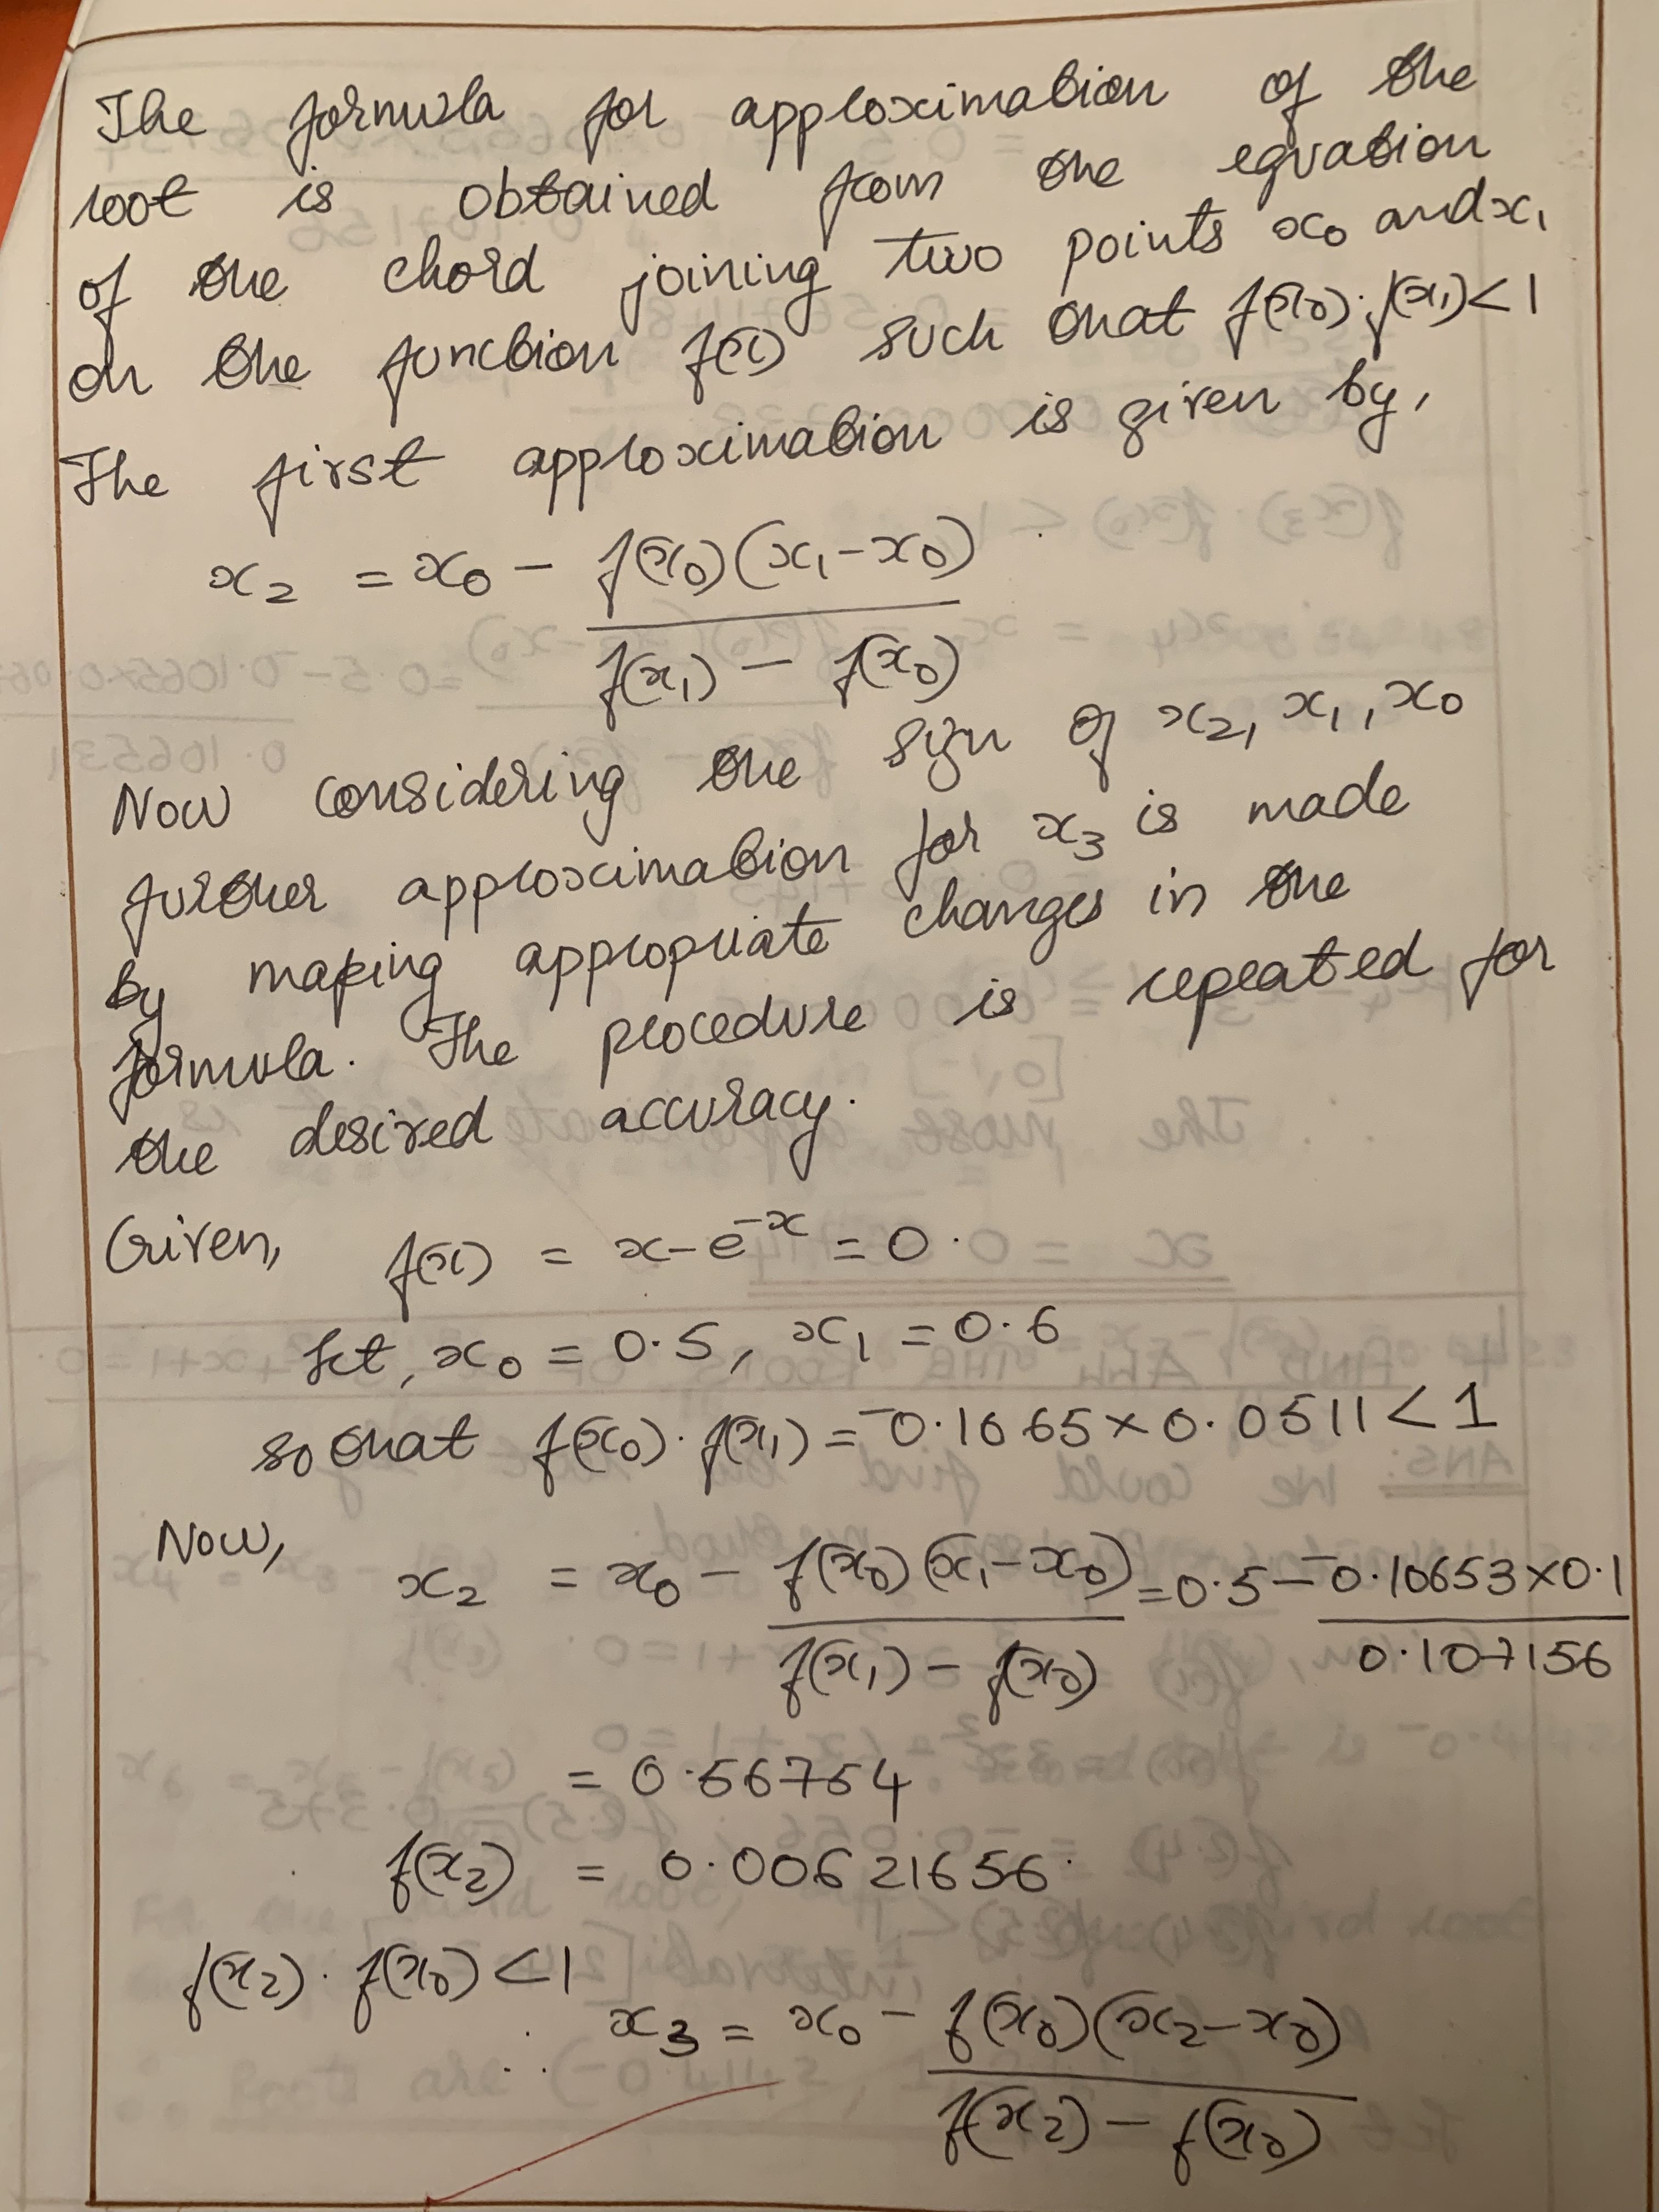 The formula for approximation of the
root is obtained from the equation
of the chord joining two points x₀ and x₁
on the function f(x) such that f(x₀)·f(x₁)<1
The first approximation is given by,
x₂ = x₀ − f(x₀)(x₁−x₀)
f(x₁) − f(x₀)
Now considering the sign of x₂, x₁, x₀
further approximation for x₃ is made
by making appropriate changes in the
formula. The procedure is repeated for
the desired accuracy.
Given, f(x) = x−e⁻ˣ = 0.
let, x₀ = 0.5, x₁ = 0.6
so that f(x₀)·f(x₁) = −0.1065×0.0511<1
Now,
x₂ = x₀ − f(x₀)(x₁−x₀) = 0.5 − −0.10653×0.1
f(x₁) − f(x₀) 0.107156
= 0.56754
f(x₂) = 0.00621656.
f(x₂)·f(x₀)<1
∴ x₃ = x₀ − f(x₀)(x₂−x₀)
f(x₂) − f(x₀)